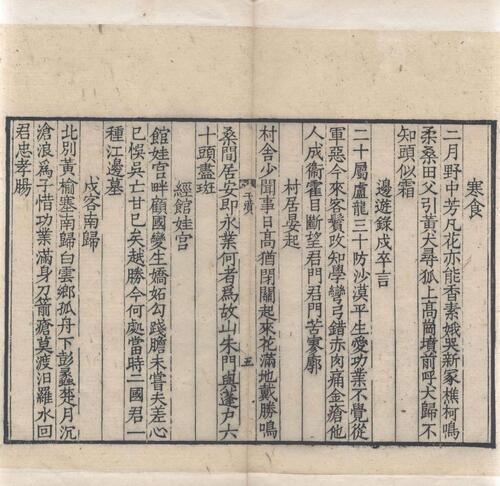 寒食
二月野中芳凡花亦能香素娥哭新冢樵柯鳴
柔桑田父引黃犬尋狐上高崗墳前呼犬歸不
知頭似霜
邊遊錄戍卒言
二十屬盧龍三十防沙漠平生愛功業不覺從
軍惡今來客鬢改知學彎弓錯赤肉痛金瘡他
人成衞霍目斷望君門君門苦寥廓
村居晏起
村舍少聞事日高猶閉關起來花滿地戴勝鳴
于濆
五
桑間居安即永業何者爲故山朱門與蓬戶六
十頭盡斑
經館娃宮
館娃宮畔顧國變生嬌妬勾踐膽未嘗夫差心
已悞吳亡甘已矣越勝今何處當時二國君一
種江邊墓
戍客南歸
北別黃榆塞南歸白雲鄉孤舟下彭蠡楚月沉
滄浪爲子惜功業滿身刀箭瘡莫渡汨羅水回
君忠孝腸